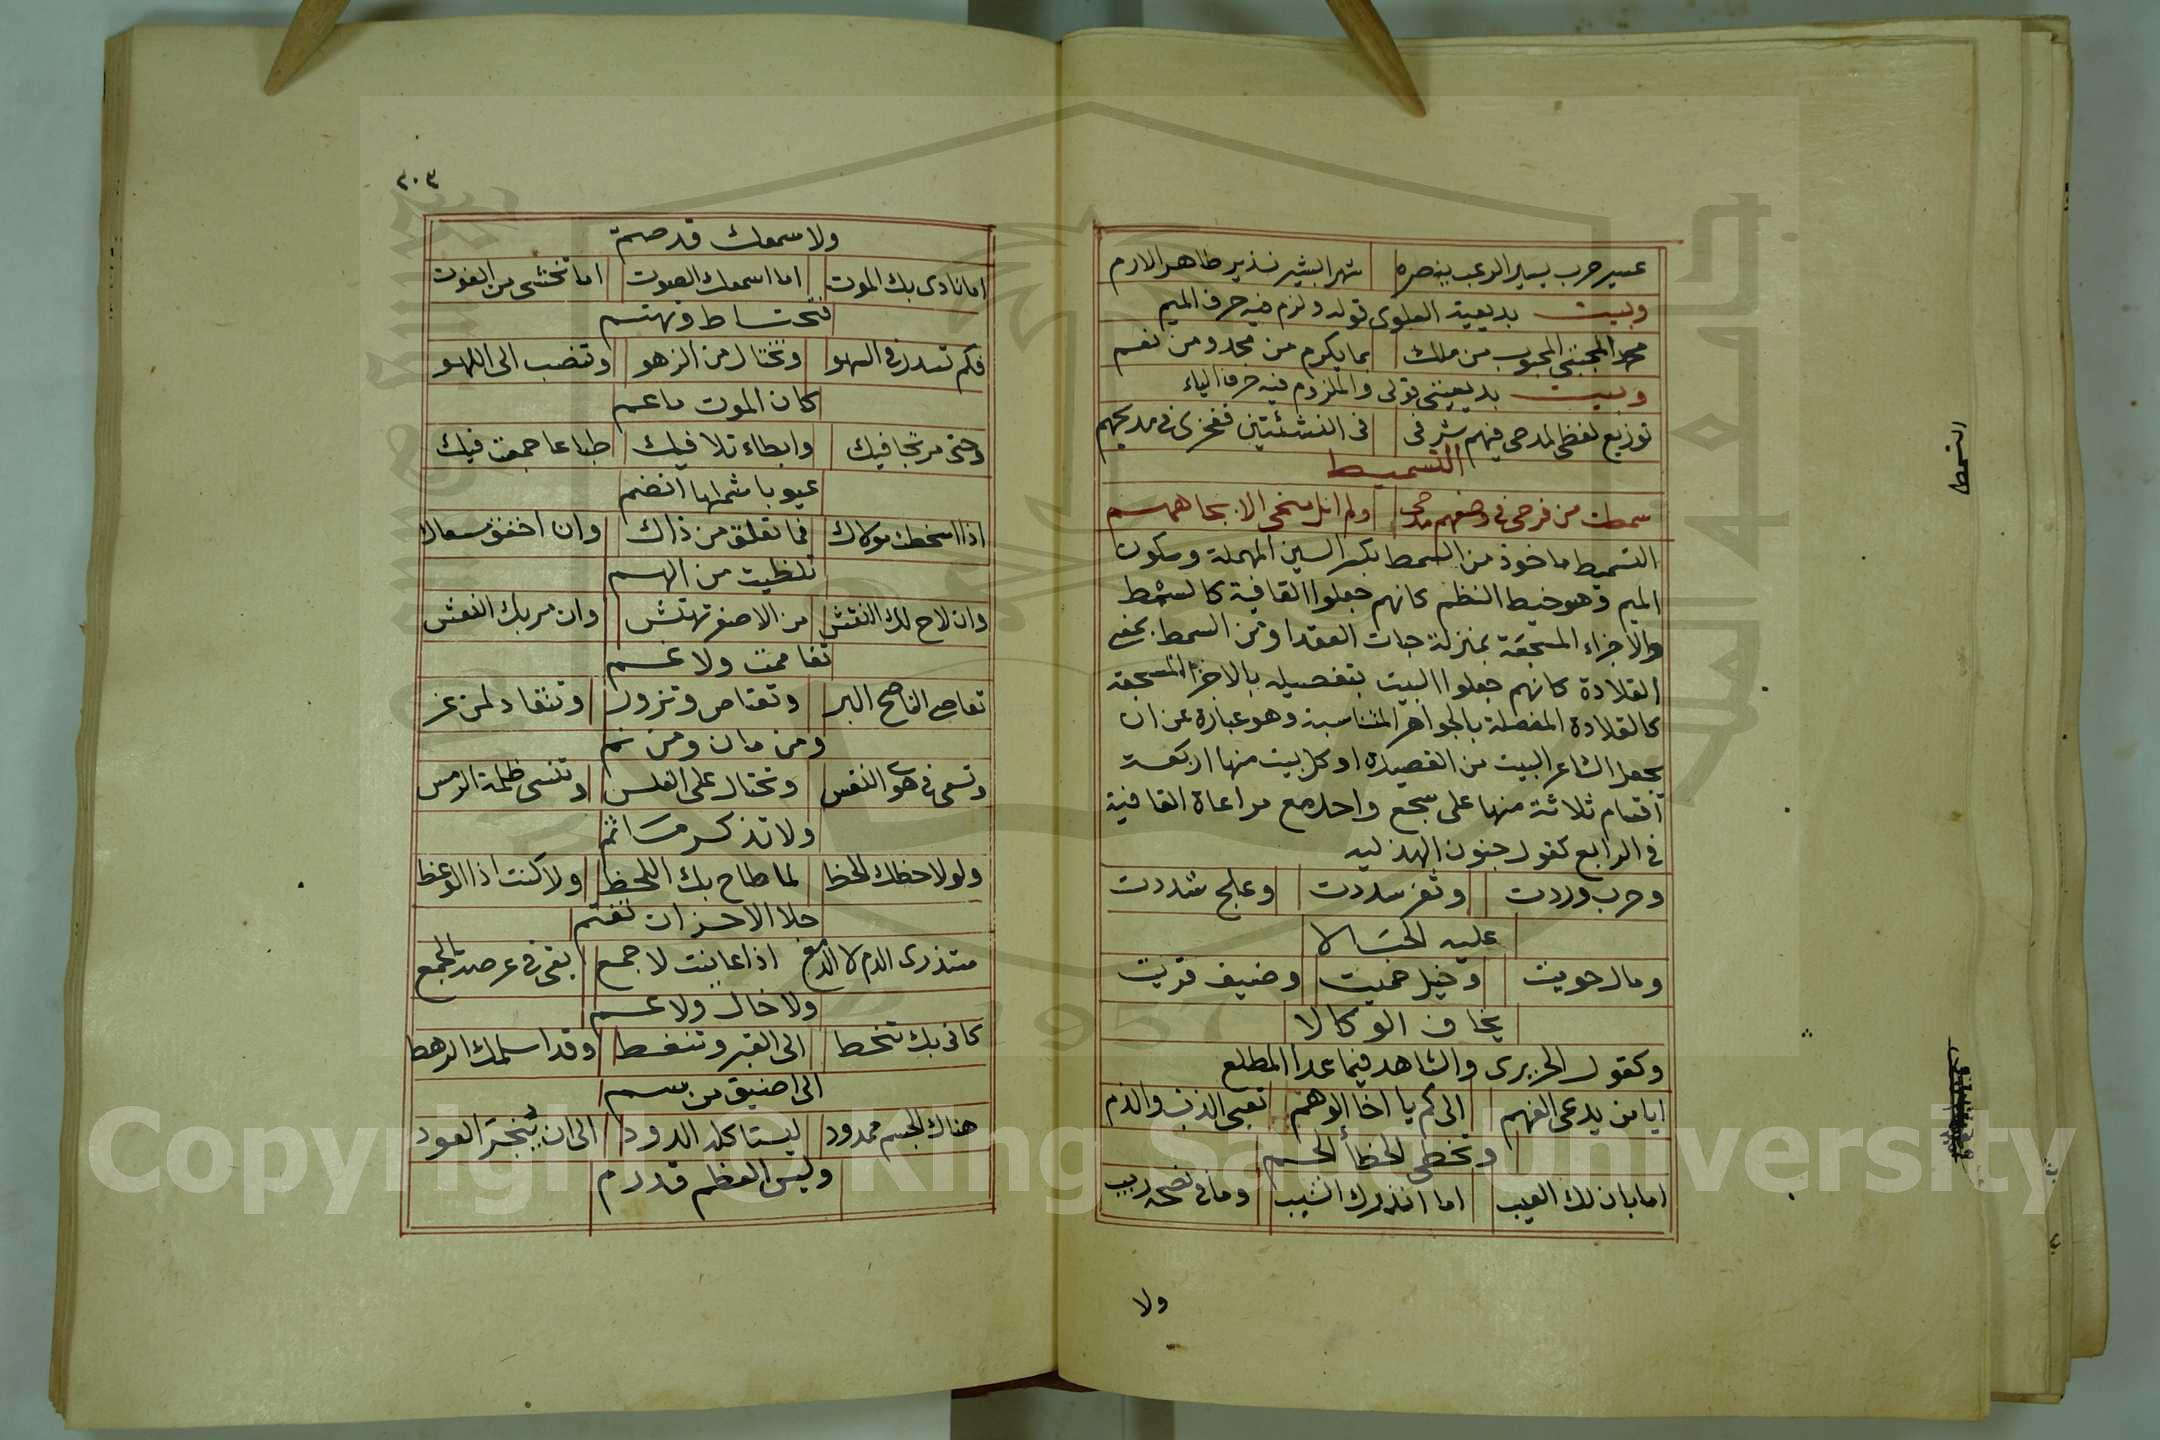 عسير حرب يسير الرعب ينصره شهر البشير نذير طاهر الارم
وبيت بديعية العلوى قوله ولزم فيه حرف الميم
محمد المجتبى المحبوب من ملك بما يكرم من مجد ومن نعم
وبيت بديعيتي قولى والملزوم فيه حرف الياء
توزيع لفظى لمدحى فيهم شرفى فى النشئتين ففخرى فى مديحهم
التسميط
سمطت من فرحى فى وصفهم مدحى ولم انل منحى الا بجاههم
التسميط ماخوذ من السمط بكسر السين المهملة وسكون
الميم وهو خيط النظم كانهم جعلوا القافية كالسمط
والاجزاء المسجعة بمنزلة حبات العقد او من السمط بمعنى
القلادة كانهم جعلوا البيت بتفصيله بالاجزا المسجعة
كالقلادة المفصلة بالجواهر المتناسبة وهو عبارة عن ان
يجعل الشاعر البيت من القصيدة او كل بيت منها اربعة
اقسام ثلاثة منها على سجع واحد مع مراعاة القافية
فى الرابع كقول جنوب الهذليه
وحرب وردت وثغر سددت وعلج شددت
عليه الحبالا
ومال حويت وخيل حميت وضيف قريت
يخاف الوكالا
وكقول الحريرى والشاهد فيما عدا المطلع
ايا من يدعى الفهم الى كم يا اخا الوهم تعبى الذنب والذم
وتخطى الخطأ الجم
اما بان لك العيب اما انذرك الشيب وما فى نصحه ريب
ولا
التسميط
٢٠٣
ولا سمعك قد صم
اما نادى بك الموت اما اسمعك الصوت اما تخشى من الفوت
فتحتاط وتهتم
فكم تسدر فى السهو وتختال من الزهو وتنصب الى اللهو
كان الموت ما عم
وحتى م تجافيك وابطاء تلافيك طباعا جمعت فيك
عيوبا شملها انضم
اذا اسخطت مولاك فما تقلق من ذاك وان اخفق مسعاك
تلظيت من الهم
وان لاح لك النقش من الاصفر تهتش وان مر بك النعش
تغاممت ولا غم
تعاصى الناصح البر وتعتاص وتزور وتنقاد لمن غر
ومن مان ومن نم
وتسعى فى هوى النفس وتحتال على الفلس وتنسى ظلمة الرمس
ولا تذكر ما ثم
ولو لاحظك الحظ لما طاح بك اللحظ ولا كنت اذا الوعظ
جلا الاحزان تغتم
ستذرى الدم لا الدمع اذا عاينت لا جمع يقى فى عرصة الجمع
ولا خال ولا عم
كانى بك تنحط الى القبر وتنغط وقد اسلمك الرهط
الى اضيق من سم
هناك الجسم ممدود ليستاكله الدود الى ان ينخر العود
وليس العظم قد رم
Copyright © King Saud University
1957